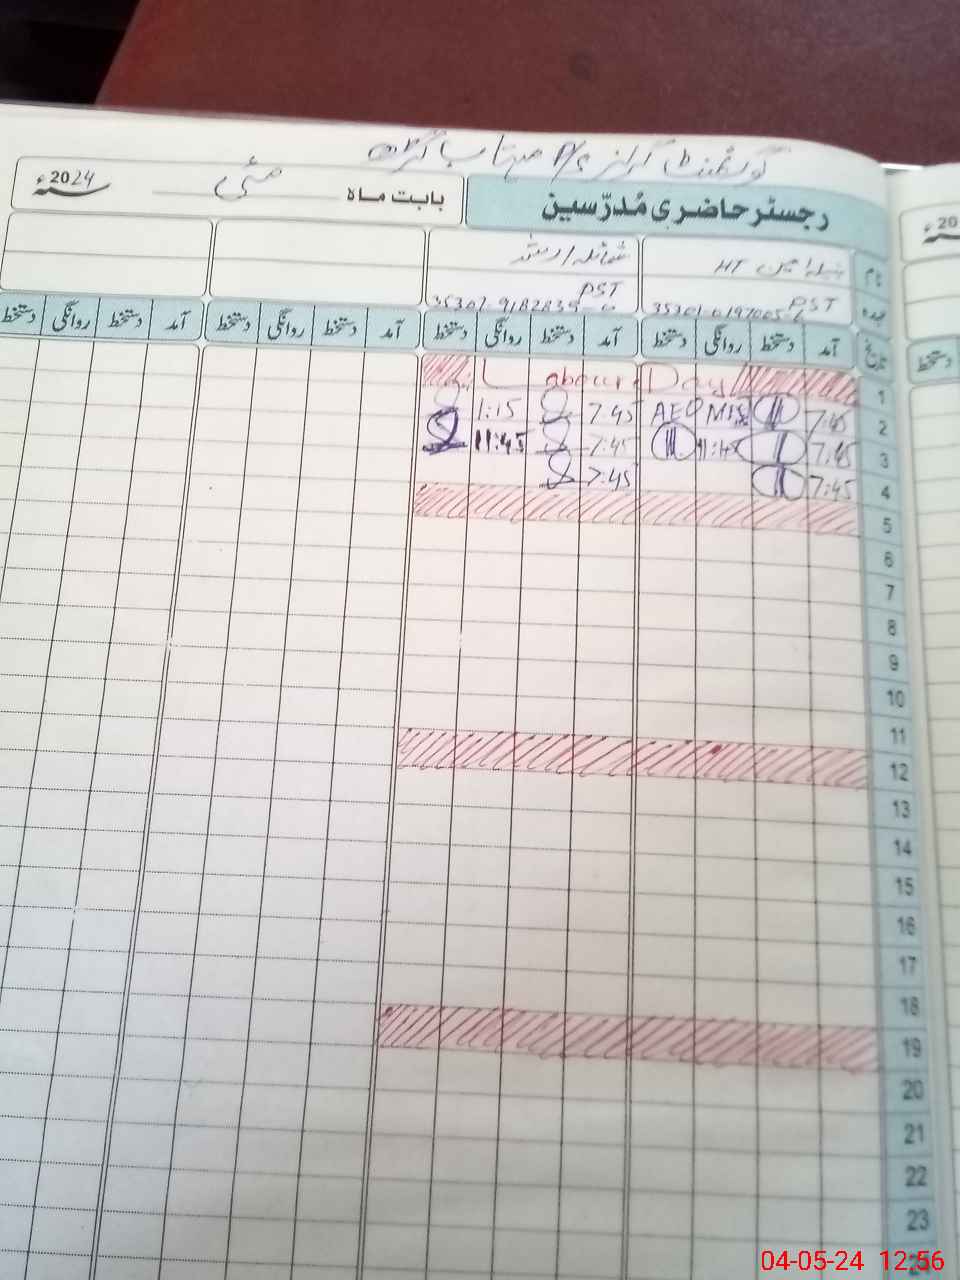 گورنمنٹ گرلز P/S مہتاب گڑھ
رجسٹر حاضری مُدرّسین
بابت ماہ مئی 2024ء
نام HT شمائلہ ارشد
عہدہ PST PST
تاریخ آمد دستخط روانگی دستخط آمد دستخط روانگی دستخط آمد دستخط روانگی دستخط آمد دستخط روانگی دستخط
1 Labour Day
2 7:45 AEO 7:45 1:15
3 7:45 11:45 7:45 11:45
4 7:45 7:45
5
6
7
8
9
10
11
12
13
14
15
16
17
18
19
20
21
22
23
20
دستخط
04-05-24 12:56